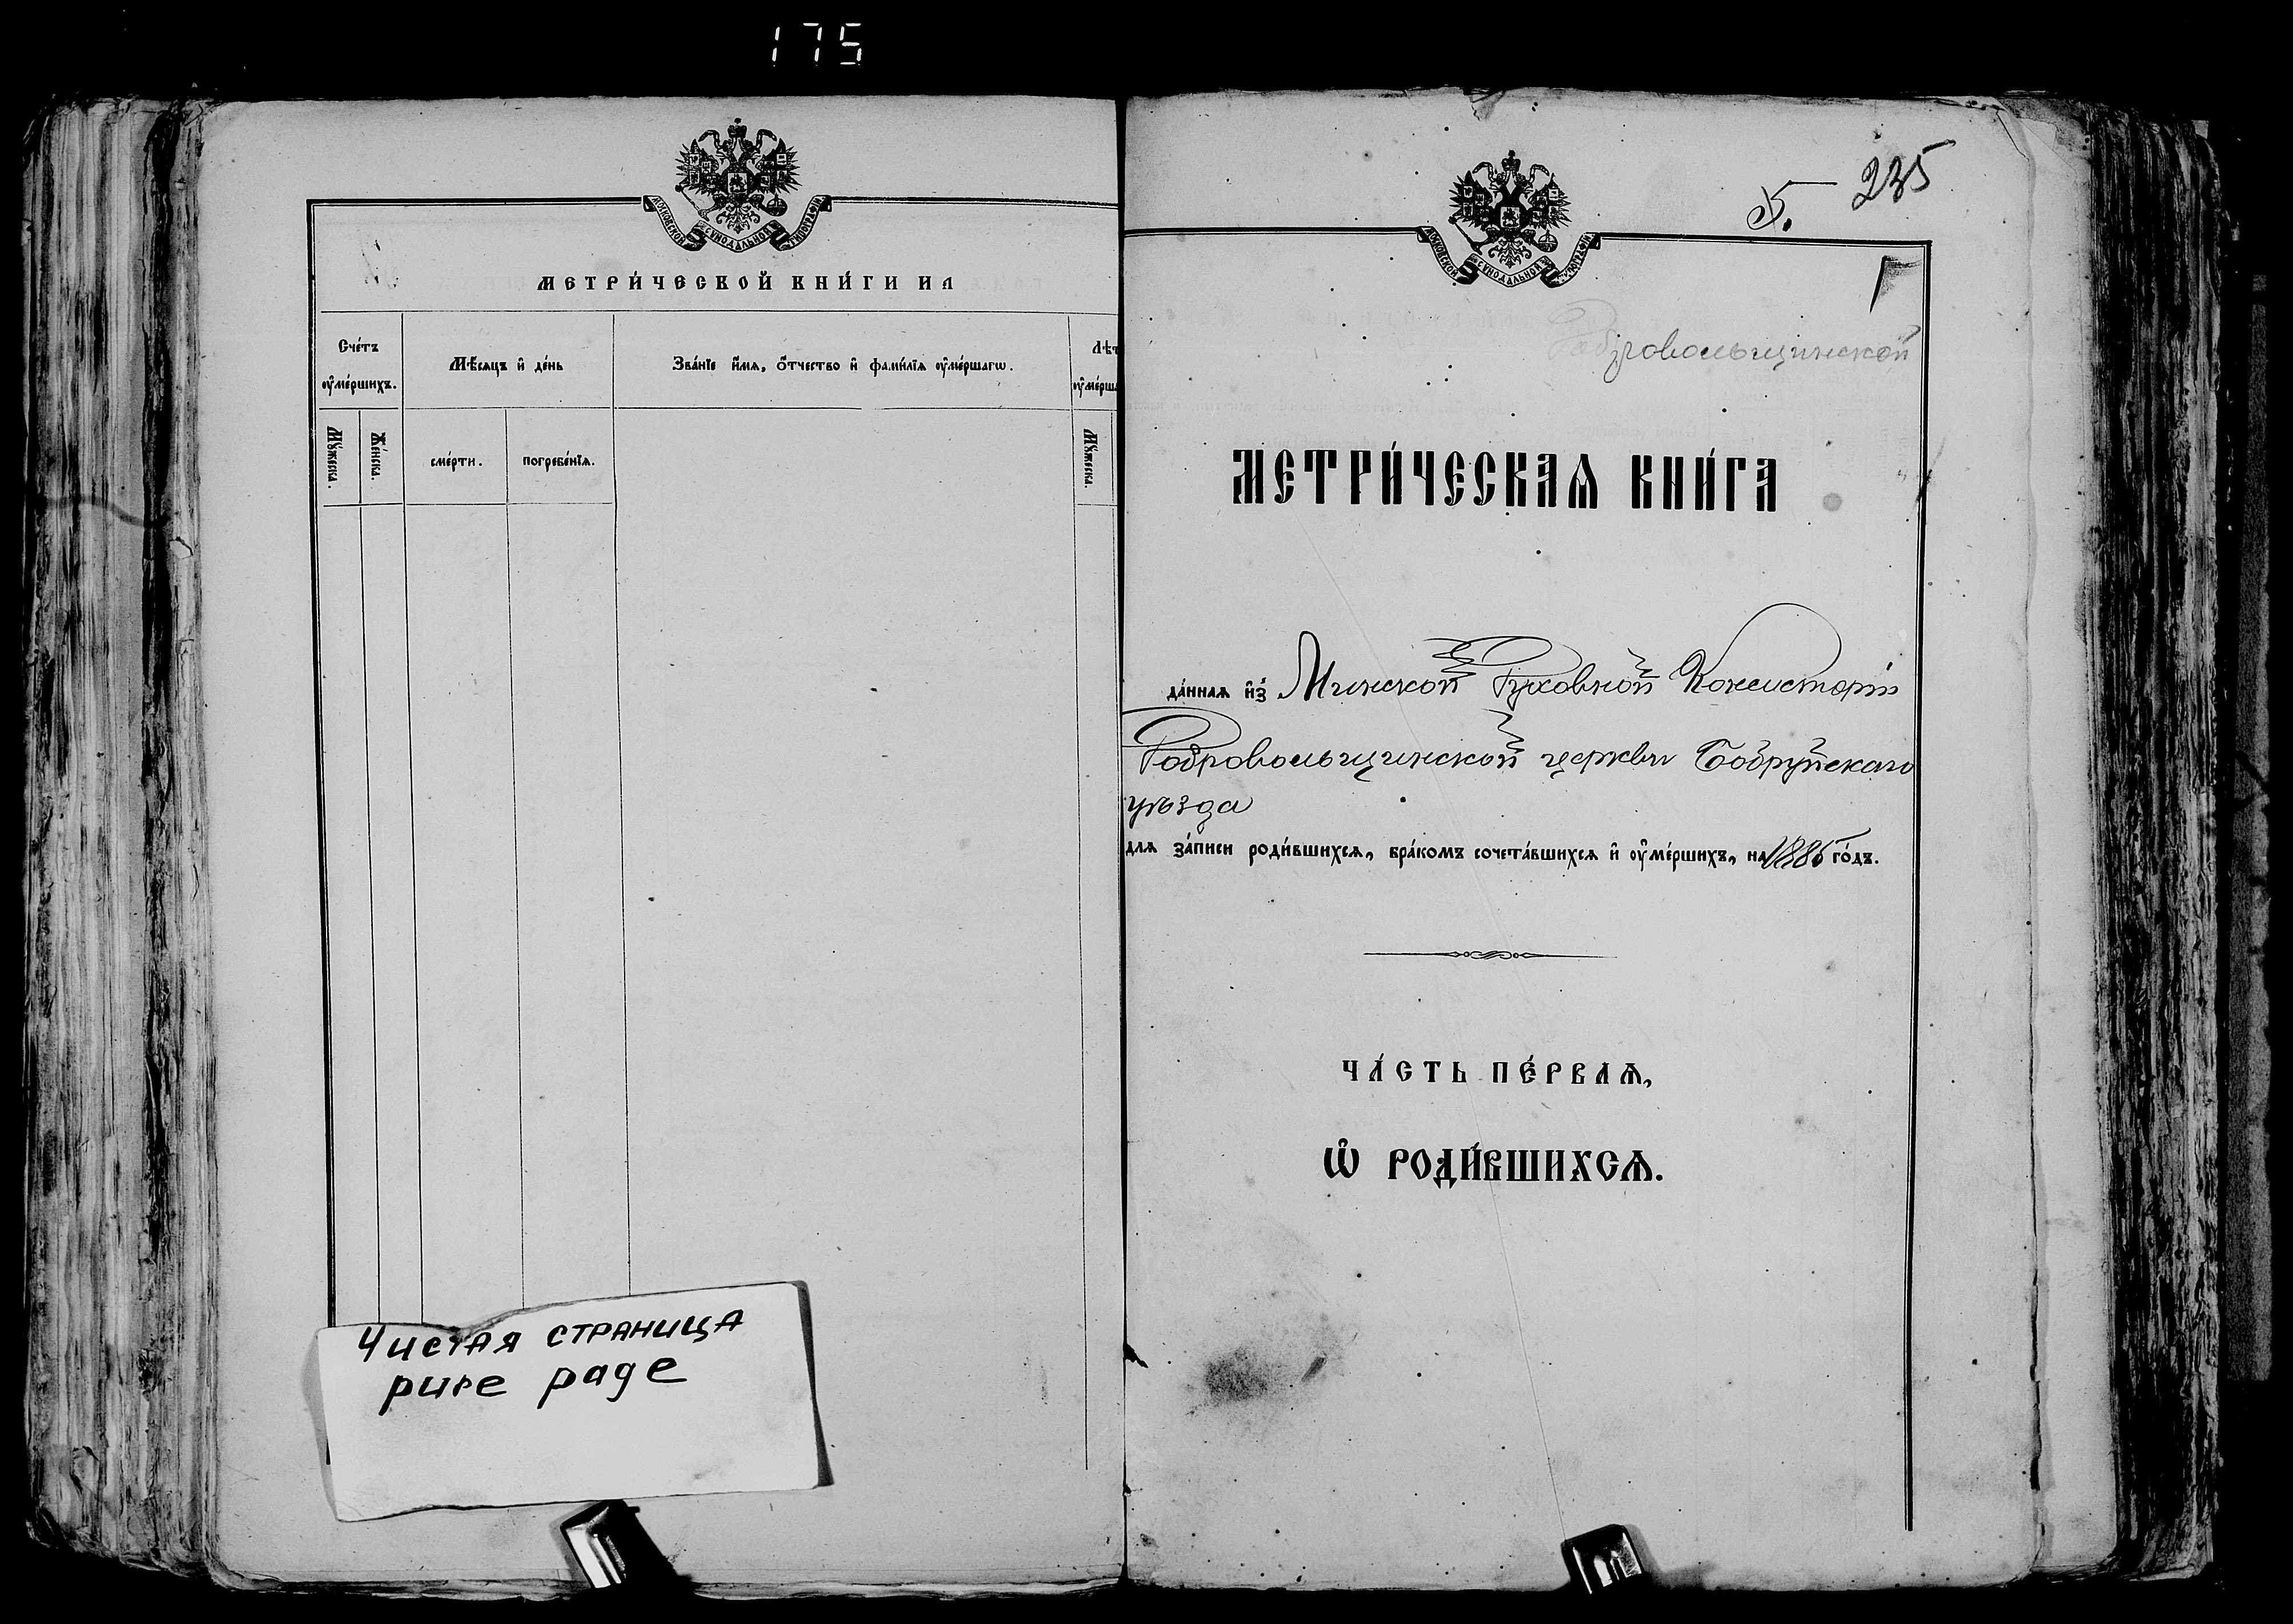 175
МОСКОВСКОЙ СѴНОДАЛЬНОЙ ТИПОГРАФІИ
МЕТРИ́ЧЕСКОЙ КНИ́ГИ НА
Сче́тъ оу҆ме́ршихъ.
Мѣ́сяцъ и҆ де́нь
Зва́нїе и҆́мѧ, ѻ҆́тчество и҆ фами́лїѧ оу҆ме́ршагѡ.
Лѣт
оу҆ме́рш
Мꙋ́жеска.
Же́нска.
сме́рти.
погребе́нїѧ.
Мꙋ́жеска.
Чистая страница
pure page
5. 235
МОСКОВСКОЙ СѴНОДАЛЬНОЙ ТИПОГРАФІИ
Добровольщинской
МЕТРИ́ЧЕСКАѦ КНИ́ГА
да́ннаѧ и҆з̾ Минской Духовной Консисторіи
Добровольщинской церкви Бобруйскаго
уѣзда
длѧ за́писи роди́вшихсѧ, бра́комъ сочета́вшихсѧ и҆ оу҆ме́ршихъ, на 1885 го́дъ.
ЧА́СТЬ ПЕ́РВАѦ,
Ѡ҆ РОДИ́ВШИХСѦ.